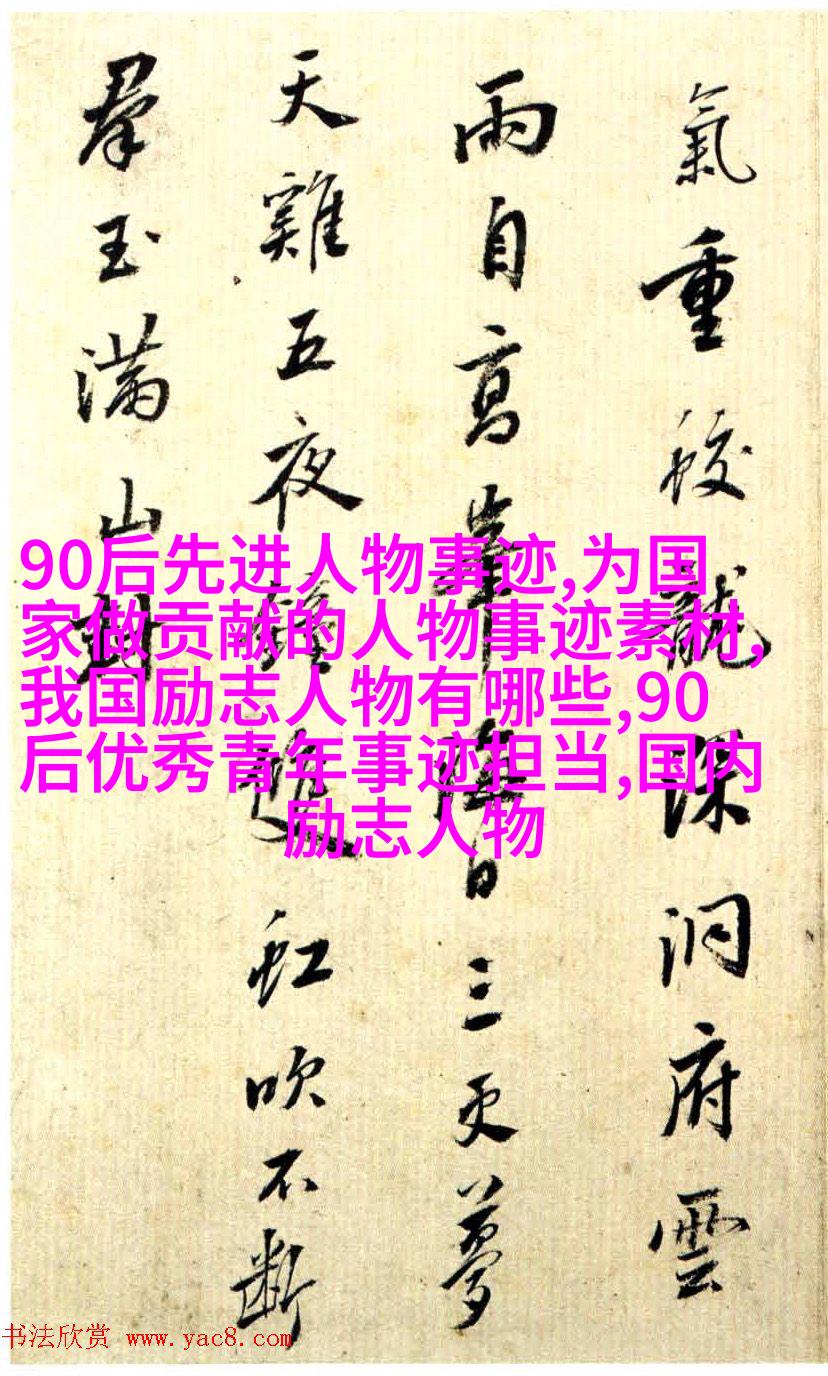 氣重蛟龍深洞府雲
雨自高峯日三更夢
天雞五夜鐘雙虹吹不斷
羣玉滿山封
90后先进人物事迹,为国
家做贡献的人物事迹素材,
我国励志人物有哪些,90
后优秀青年事迹担当,国内
励志人物
书法欣赏 www.yac8.com